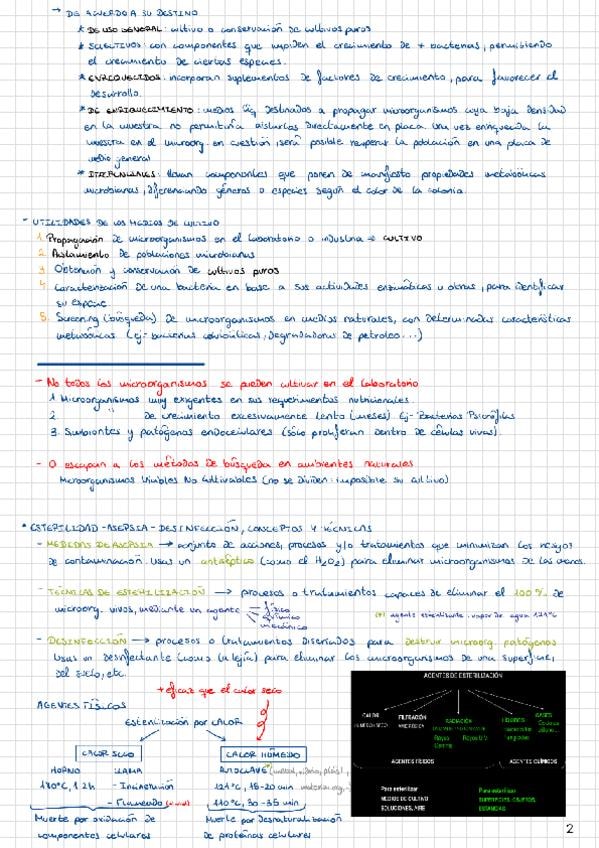 → DE ACUERDO A SU DESTINO
* DE USO GENERAL: cultivo o conservación de cultivos puros
* SELECTIVOS: con componentes que impiden el crecimiento de + bacterias, permitiendo
el crecimiento de ciertas especies.
* ENRIQUECIDOS: incorporan suplementos de factores de crecimiento, para favorecer el
desarrollo.
* DE ENRIQUECIMIENTO: medios líq destinados a propagar microorganismos cuya baja densidad
en la muestra no permitiría aislarlos directamente en placa. Una vez enriquecida la
muestra en el microorg. en cuestión, será posible recuperar la población en una placa de
medio general
* DIFERENCIALES: llevan componentes que ponen de manifiesto propiedades metabólicas
microbianas, diferenciando géneros o especies según el color de la colonia.
- UTILIDADES DE LOS MEDIOS DE CULTIVO
1. Propagación de microorganismos en el laboratorio o industria → CULTIVO
2. Aislamiento de poblaciones microbianas
3. Obtención y conservación de cultivos puros
4. Caracterización de una bacteria en base a sus actividades enzimáticas u otras, para identificar
su especie
5. Screening (búsqueda) de microorganismos en medios naturales, con determinadas características
metabólicas (ej- bacterias degradadoras de petroleo...)
- No todos los microorganismos se pueden cultivar en el laboratorio
1. Microorganismos muy exigentes en sus requerimientos nutricionales.
2. " de crecimiento excesivamente lento (meses) Ej- Bacterias Psicrófilas
3. Simbiontes y patógenos endocelulares (sólo proliferan dentro de células vivas).
- O escapan a los métodos de búsqueda en ambientes naturales
Microorganismos Viables No Cultivables (no se dividen: imposible su cultivo)
* ESTERILIDAD-ASEPSIA-DESINFECCIÓN, CONCEPTOS Y TÉCNICAS
- MEDIDAS DE ASEPSIA → conjunto de acciones, procesos y/o tratamientos que minimizan los riesgos
de contaminación. Usas un antiséptico (como el H2O2) para eliminar microorganismos de las manos.
- TÉCNICAS DE ESTERILIZACIÓN → procesos o tratamientos capaces de eliminar el 100% de
microorg. vivos, mediante un agente físico
químico
mecánico
(*) agente esterilizante: vapor de agua 121ºC
- DESINFECCIÓN → procesos o tratamientos diseñados para destruir microorg. patógenos
Usas un desinfectante (como la lejía) para eliminar los microorganismos de una superficie,
del suelo, etc.
+ eficaz que el calor seco
AGENTES FÍSICOS
Esterilización por CALOR
CALOR SECO
CALOR HÚMEDO
HORNO LLAMA
180ºC, 1-2 h - Incineración
- Flameado
AUTOCLAVE
121ºC, 15-20 min
110ºC, 30-35 min
Muerte por oxidación de
componentes celulares
Muerte por Desnaturalización
de proteínas celulares
AGENTES DE ESTERILIZACIÓN
CALOR
FILTRACIÓN
RADIACIÓN
Rayos Gamma
Rayos UV
GASES
AGENTES FÍSICOS
AGENTES QUÍMICOS
Para esterilizar
MEDIOS DE CULTIVO
SOLUCIONES, AIRE
Para esterilizar
SUPERFICIES, OBJETOS,
ESTANCIAS
2